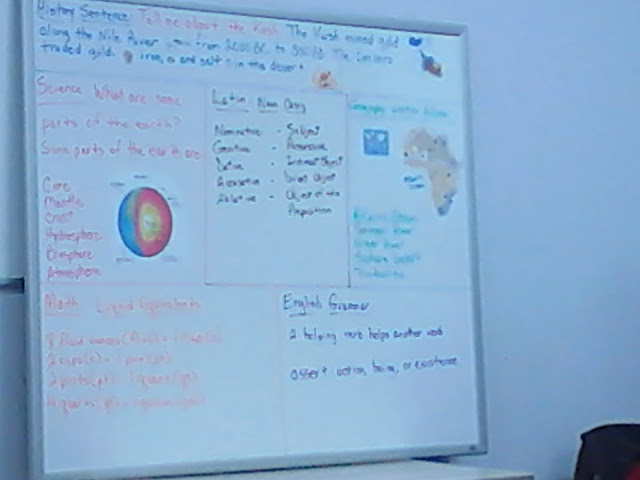 History Sentence: Tell me about the Kush. The Kush mined gold
along the Nile River from 2000 BC to 350 AD. The
traded gold, iron, and salt in the desert
Science What are some
parts of the earth?
Some parts of the earth are
Core
Mantle
Crust
Hydrosphere
Biosphere
Atmosphere
Latin Noun
Nominative - Subject
Genitive - Possessive
Dative - Indirect Object
Accusative - Direct Object
Ablative - Object of the
Preposition
Geography Western Africa
Atlantic Ocean
Niger River
Sahara Desert
Timbuktu
Math: Liquid Equivalents
8 fluid ounces (fl oz) = 1 cup (c)
2 cups (c) = 1 pint (pt)
2 pints (pt) = 1 quart (qt)
4 quarts (qt) = 1 gallon (gal)
English Grammar
2 helping verb helps another verb
assert action, being, or existence